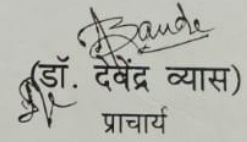 (डॉ. देवेंद्र व्यास)
प्राचार्य